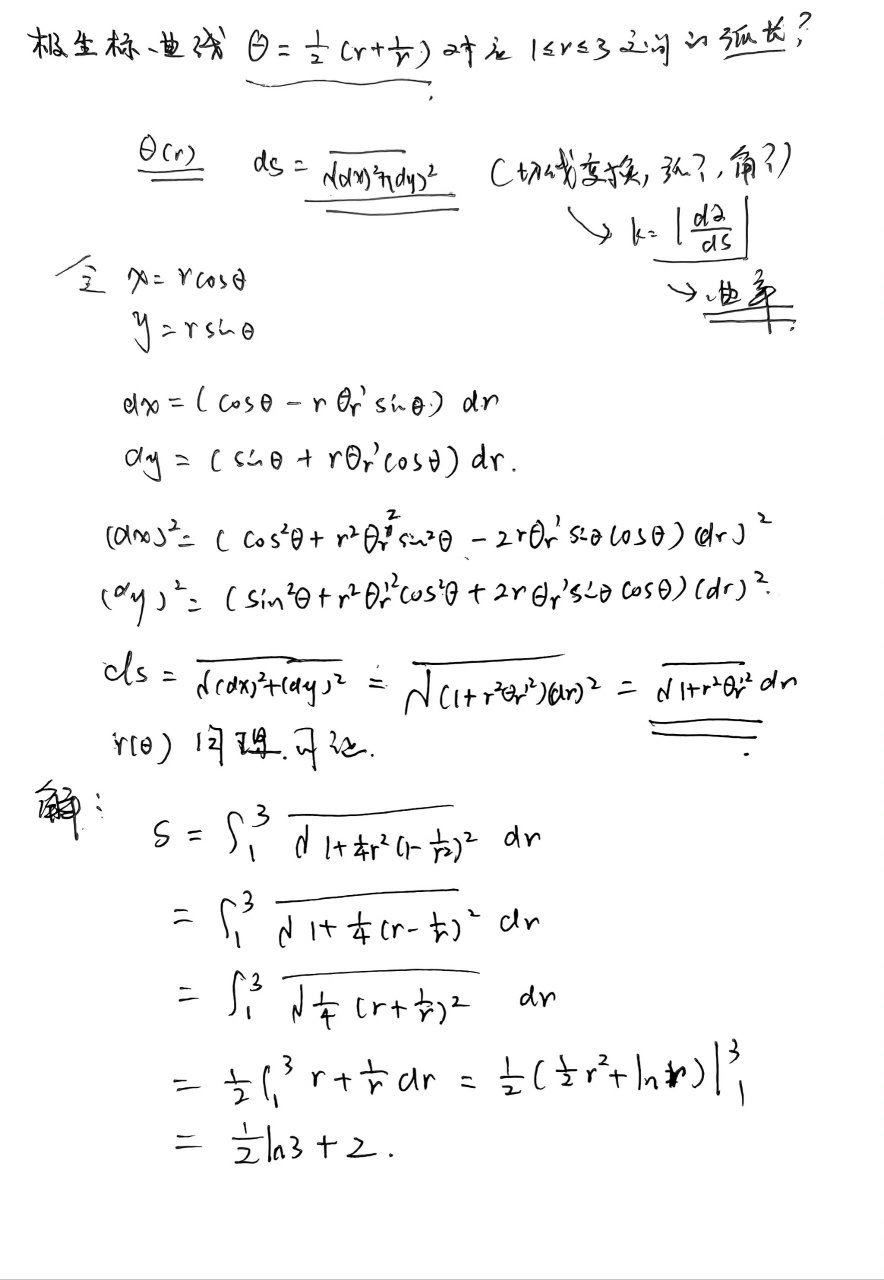 极坐标曲线 θ = 1/2 (r + 1/r) 对应 1≤r≤3 之间的弧长?
θ(r) ds = √((dx)²+(dy)²) (切线变换, 弧?, 角?)
↘ k = |dα/ds|
↘ 曲率.
令 x = r cosθ
y = r sinθ
dx = (cosθ - r θr' sinθ) dr
dy = (sinθ + r θr' cosθ) dr.
(dx)² = (cos²θ + r² θr'² sin²θ - 2r θr' sinθ cosθ) (dr)²
(dy)² = (sin²θ + r² θr'² cos²θ + 2r θr' sinθ cosθ) (dr)².
ds = √((dx)²+(dy)²) = √((1+r²θr'²)(dr)²) = √(1+r²θr'²) dr
r(θ) 同理.可证.
解:
S = ∫₁³ √(1+ 1/4 r² (1- 1/r²)²) dr
= ∫₁³ √(1+ 1/4 (r- 1/r)²) dr
= ∫₁³ √(1/4 (r+ 1/r)²) dr
= 1/2 ∫₁³ r+ 1/r dr = 1/2 (1/2 r² + ln r) |₁³
= 1/2 ln3 + 2.